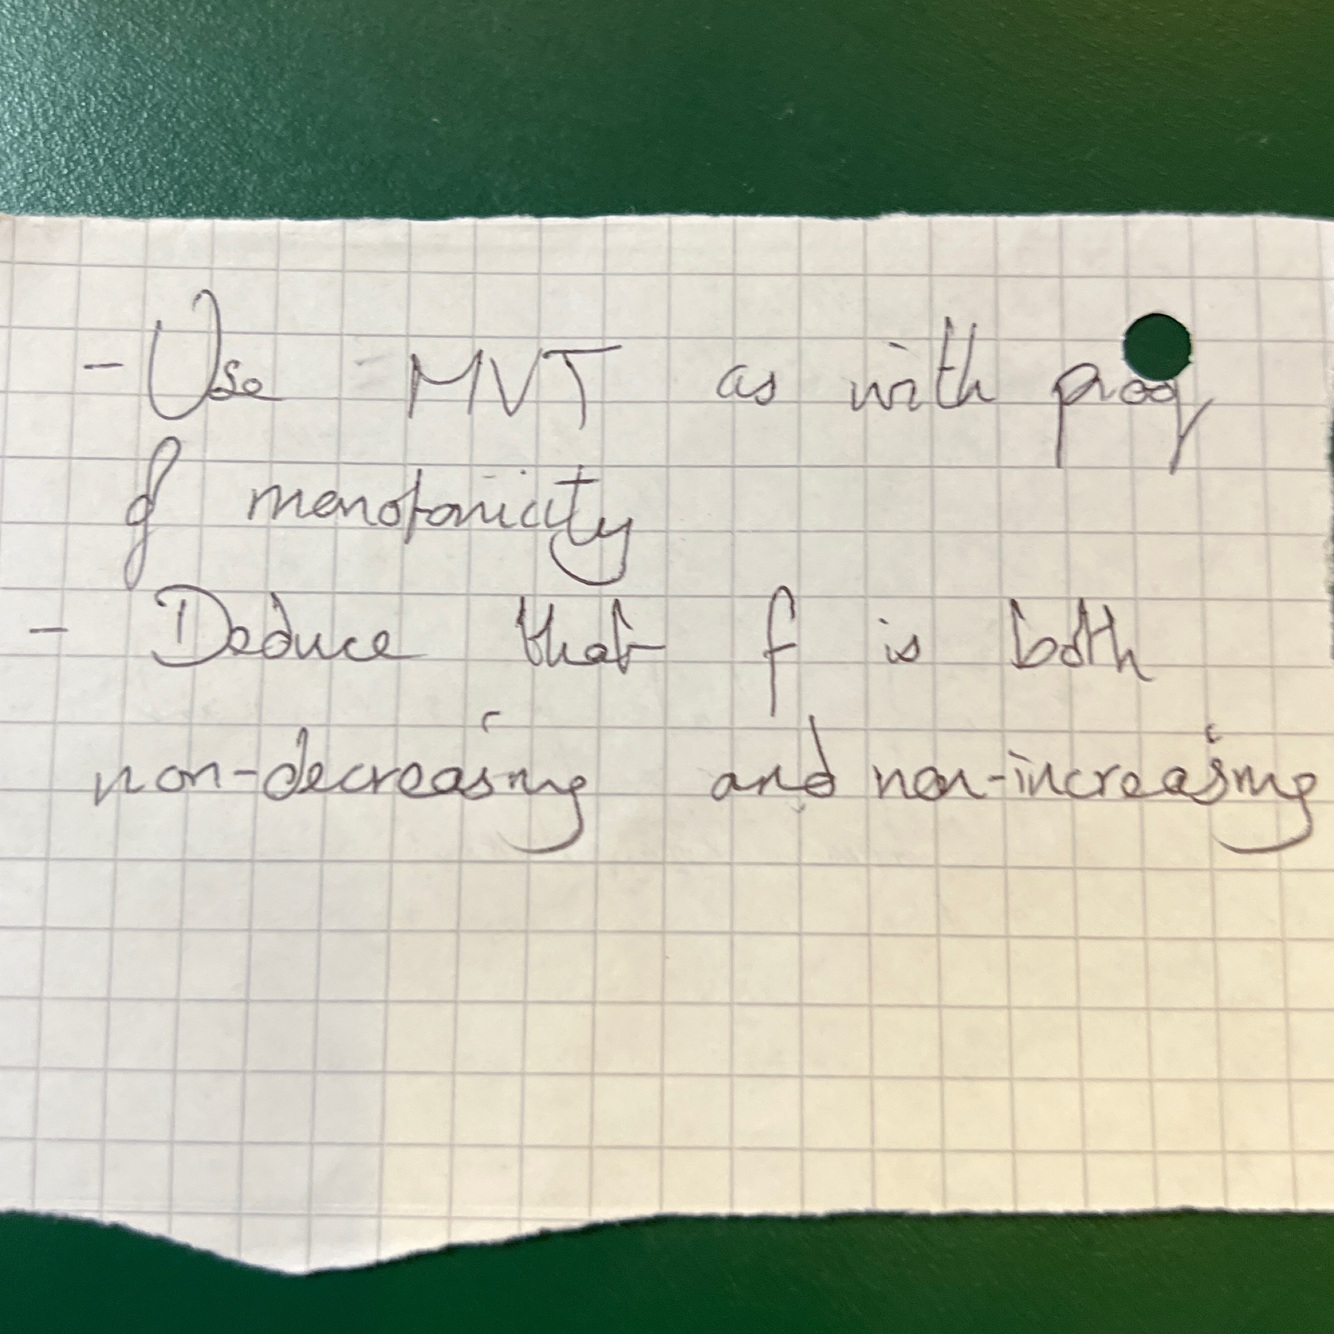 - Use MVT as with proof
of monotonicity
- Deduce that f is both
non-decreasing and non-increasing